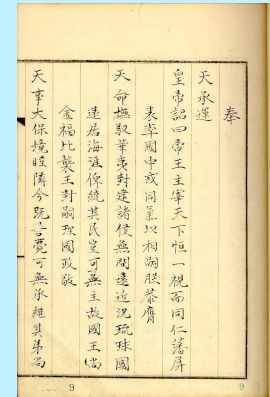 奉
天承運
皇帝詔曰帝王主宰天下恒一視而同仁藩屏
表率國中或同氣以相嗣朕恭膺
天命撫馭華夷封建諸侯無間遠近況琉球國
遠居海涯俾統其民豈可無主故國王尚
金福比襲王封嗣理國政敬
天事大保境睦隣今既薨可無承繼其弟尚
9
9